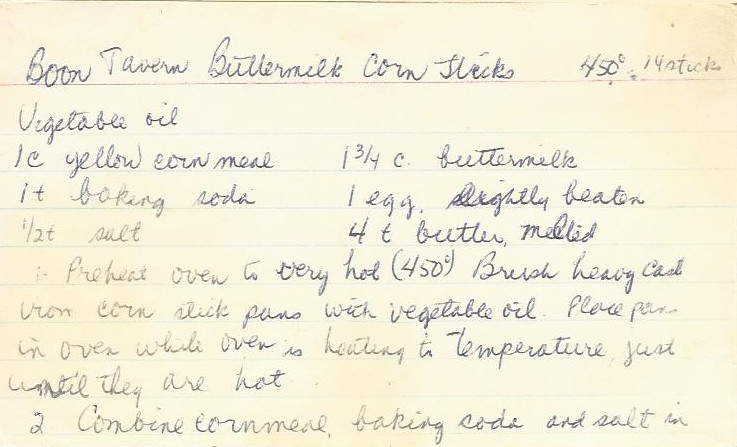 Boon Tavern Buttermilk Corn Sticks 450° 14 sticks
Vegetable oil
1c yellow corn meal 1 3/4 c. buttermilk
1t baking soda 1 egg, slightly beaten
1/2t salt 4 t butter, melted
1. Preheat oven to very hot (450°) Brush heavy cast
iron corn stick pans with vegetable oil. Place pans
in oven while oven is heating to temperature, just
until they are hot.
2 Combine cornmeal, baking soda and salt in